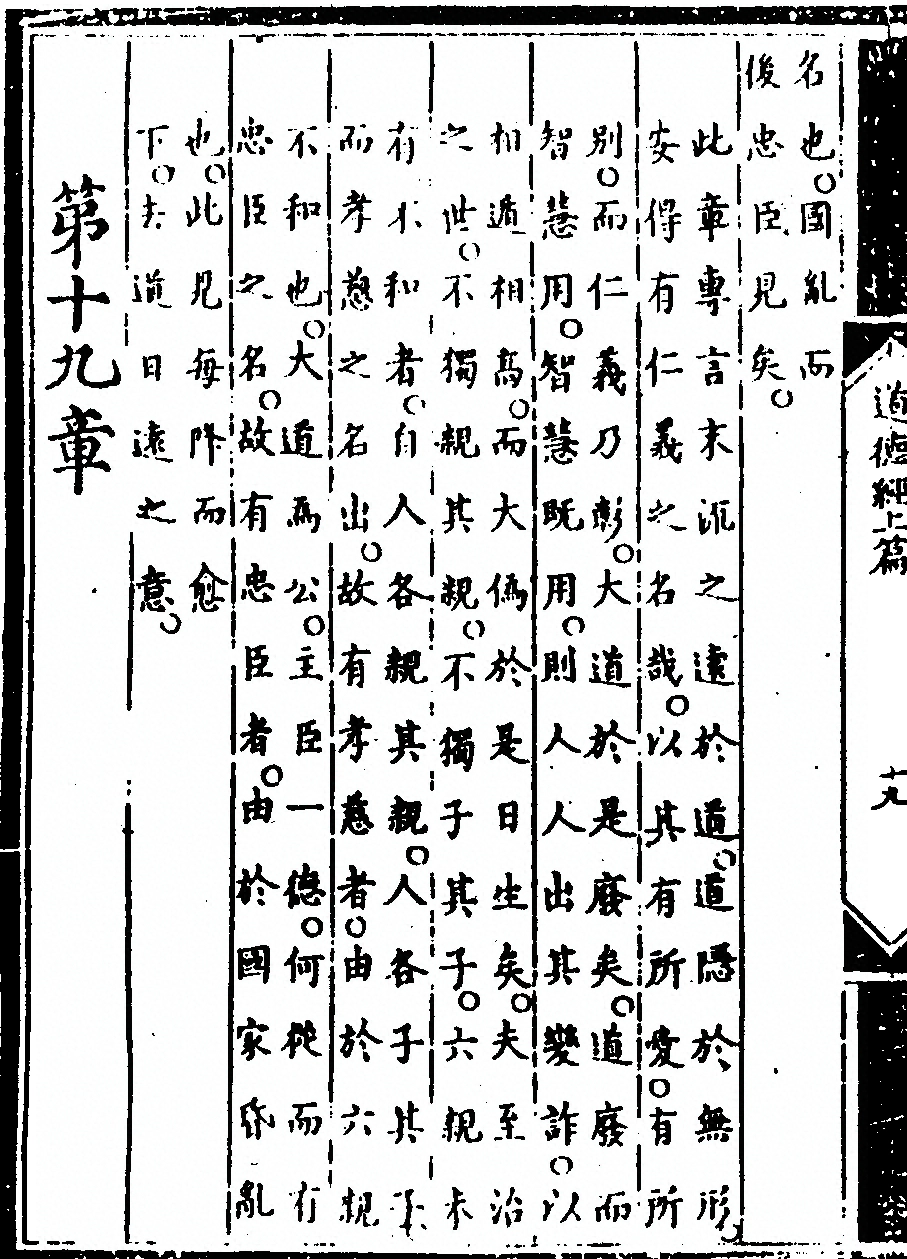 名也。國亂而
後忠臣見矣。
此章專言末流之遠於道。道隱於無形
安得有仁義之名哉。以其有所愛。有所
別。而仁義乃彰。大道於是廢矣。道廢而
智慧用。智慧既用。則人人出其變詐。以
相遁相爲。而大僞於是日生矣。夫至治
之世。不獨親其親。不獨子其子。六親未
有不和者。自人各親其親。人各子其子
而孝慈之名出。故有孝慈者。由於六親
不和也。大道爲公。主臣一德。何從而有
忠臣之名。故有忠臣者。由於國家昏亂
也。此見每降而愈
下。去道日遠之意。
第十九章
道德經上篇
十九